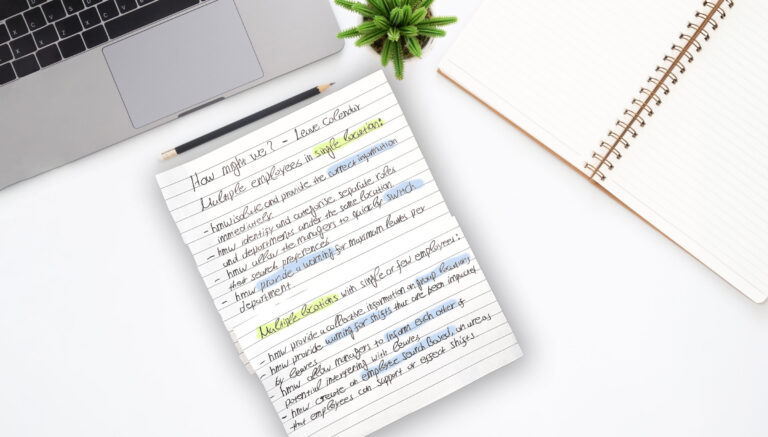 How might we? - Leave calendar
Multiple employees in single location:
- hmw isolate and provide the correct information
immediately
- hmw identify and categorise separate roles
and departments under the same location
- hmw allow the managers to quickly switch
their search preferences
- hmw provide a warning for maximum leaves per
department
Multiple locations with single or few employees:
- hmw provide a collective information on group locations
- hmw provide warning for shifts that are been impacted
by leaves
- hmw allow managers to inform each other of
potential intervening with leaves
- hmw create an employee search based, on areas
that employees can support or expect shifts